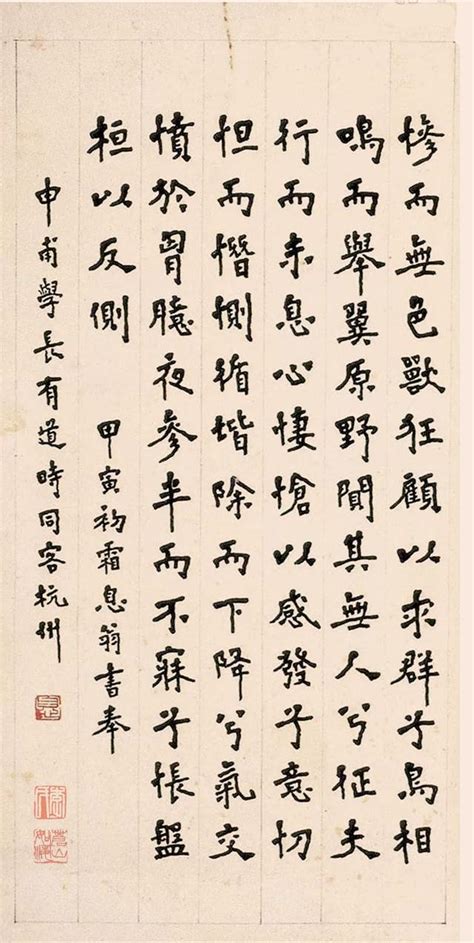 慘而無色獸狂顧以求群兮鳥相
鳴而舉翼原野闃其無人兮征夫
行而未息心悽愴以感發兮意忉
怛而憯惻循堦除而下降兮氣交
憤於胷臆夜參半而不寐兮悵盤
桓以反側 甲寅初霜息翁書奉
申甫學長有道時同客杭州